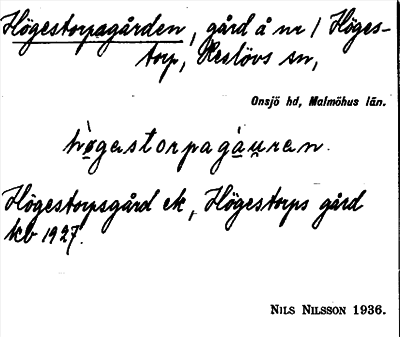 Högestorpagården, gård å nr 1 Höges-
torp, Hurlövs sn,
Onsjö hd, Malmöhus län.
hògastorpagạu̯ran.
Högestorpsgård ek, Högestorps gård
kb 1927.
NILS NILSSON 1936.